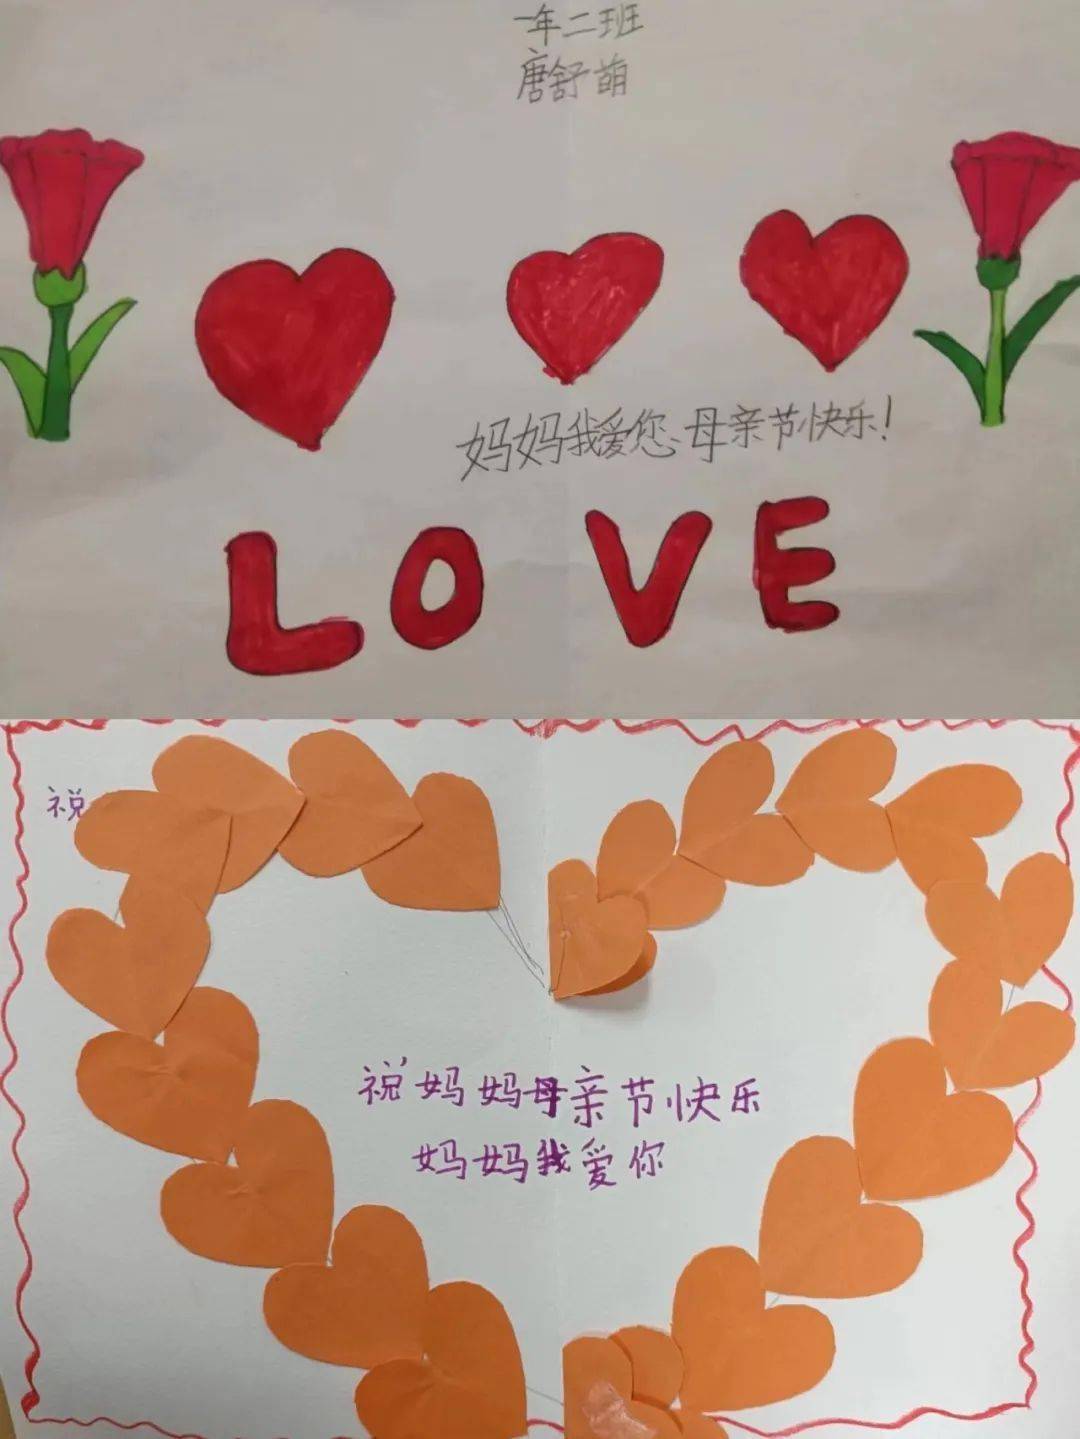 一年二班
唐舒萌
妈妈我爱您、母亲节快乐！
LOVE
祝
祝妈妈母亲节快乐
妈妈我爱你